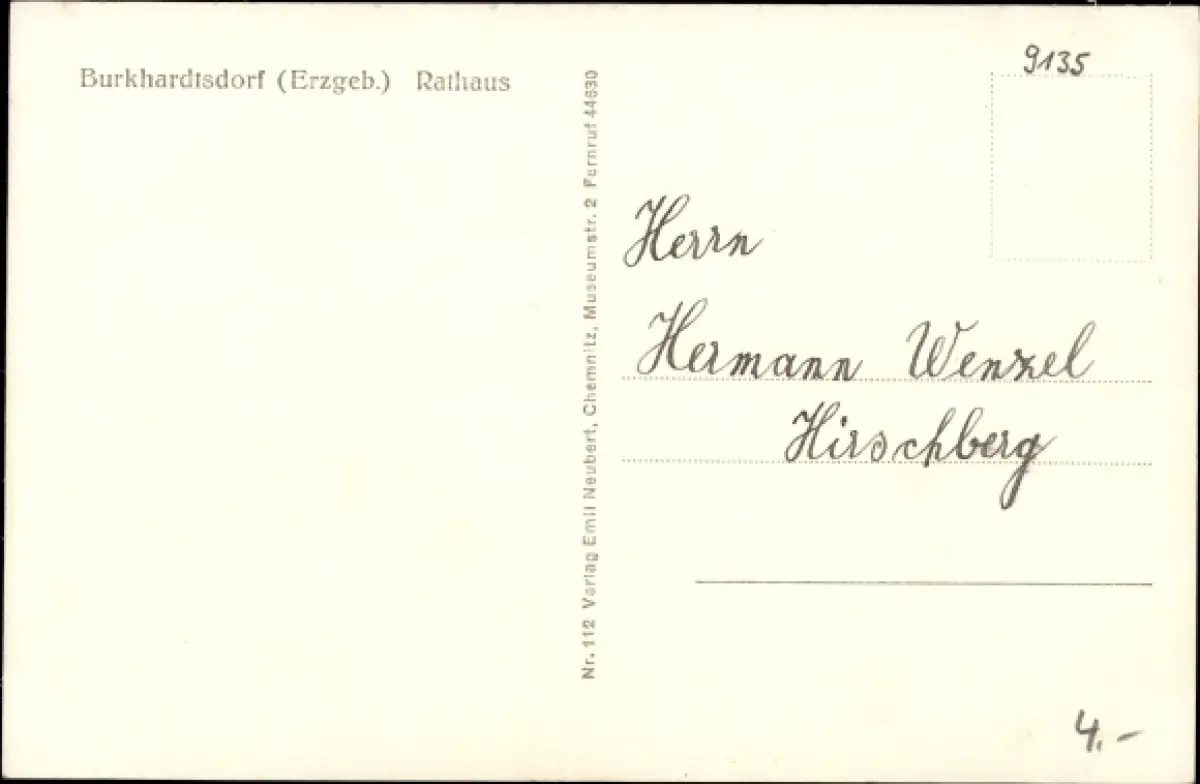 Burkhardtsdorf (Erzgeb.) Rathaus
Nr. 112 Verlag Emil Neubert, Chemnitz, Museumstr. 2 Fernruf 44630
9135
Herrn
Hermann Wenzel
Hirschberg
4.-